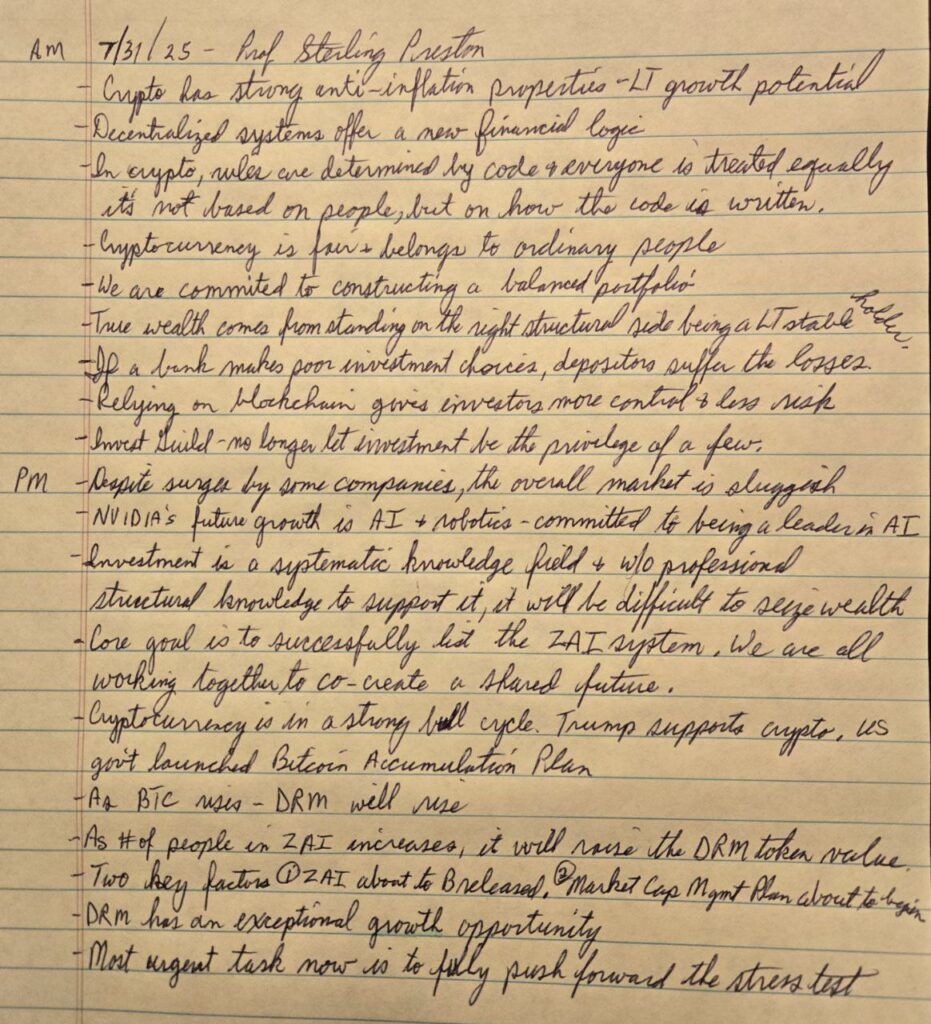 AM 7/31/25 - Prof Sterling Preston
- Crypto has strong anti-inflation properties - LT growth potential
- Decentralized systems offer a new financial logic
- In crypto, rules are determined by code & everyone is treated equally
it's not based on people, but on how the code is written.
- Cryptocurrency is fair + belongs to ordinary people
- We are commited to constructing a balanced portfolio
- True wealth comes from standing on the right structural side being a LT stable holder.
- If a bank makes poor investment choices, depositors suffer the losses.
- Relying on blockchain gives investors more control & less risk
- Invest Guild - no longer let investment be the privilege of a few.
PM - Despite surges by some companies, the overall market is sluggish
- NVIDIA's future growth is AI + robotics - committed to being a leader in AI
- Investment is a systematic knowledge field & w/o professional
structural knowledge to support it, it will be difficult to seize wealth
- Core goal is to successfully list the ZAI system. We are all
working together to co-create a shared future.
- Cryptocurrency is in a strong bull cycle. Trump supports crypto. US
gov't launched Bitcoin Accumulation Plan
- As BTC rises - DRM will rise
- As # of people in ZAI increases, it will raise the DRM token value.
- Two key factors ① ZAI about to B released. ② Market Cap Mgmt Plan about to begin
- DRM has an exceptional growth opportunity
- Most urgent task now is to fully push forward the stress test